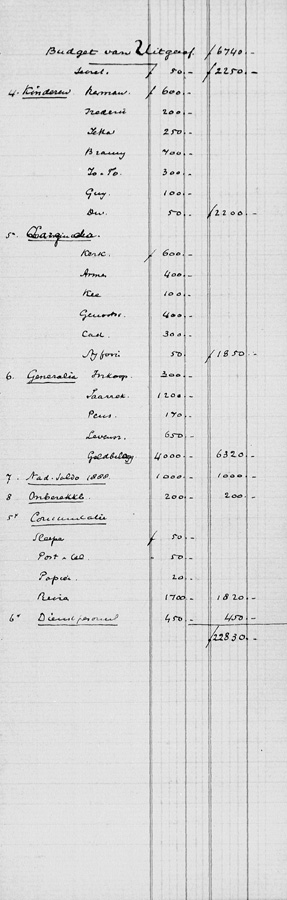 Budget van Uitgaaf. f 6740.-
f 50.- f 2250.-
4. Kinderen Herman f 600.-
Frederic 200.-
250.-
Bramy 700.-
To-To. 300.-
Guy. 100.-
50.- f 2200.-
5a
Kerk f 600.-
Armen 400.-
Kee 100.-
Genootsc. 400.-
Cad. 300.-
50. f 1850.-
6. Generalia Inkoop. 300.-
1200.-
Pens. 170.-
Levensv. 650.-
Geldbelegg 4000.- 6320.-
7. Nad. Saldo 1888. 1000.- 1000.-
8 Onberekb. 200.- 200.-
5b Communicatie
Sleepe f 50.-
Post- 50.-
Papier 20.-
Reizen 1700.- 1820.-
6b Dienstpersoneel 450.- 450.-
f 22830.-